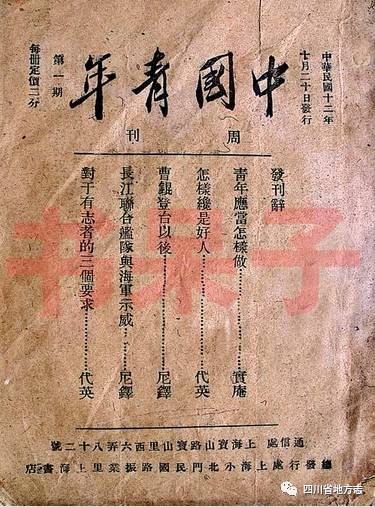 中華民國十二年
十月二十日發行
中國青年
周刊
第一期
每冊定價三分
發刊辭
青年應當怎樣做…………實庵
怎樣纔是好人…………代英
曹錕登台以後…………尼鐸
長江聯合艦隊與海軍示威…尼鐸
對于有志者的三個要求………代英
通信處 上海寶山路寶山里西六弄八十二號
總發行處上海小北門民國路振業里上海書店
书果子
四川省地方志